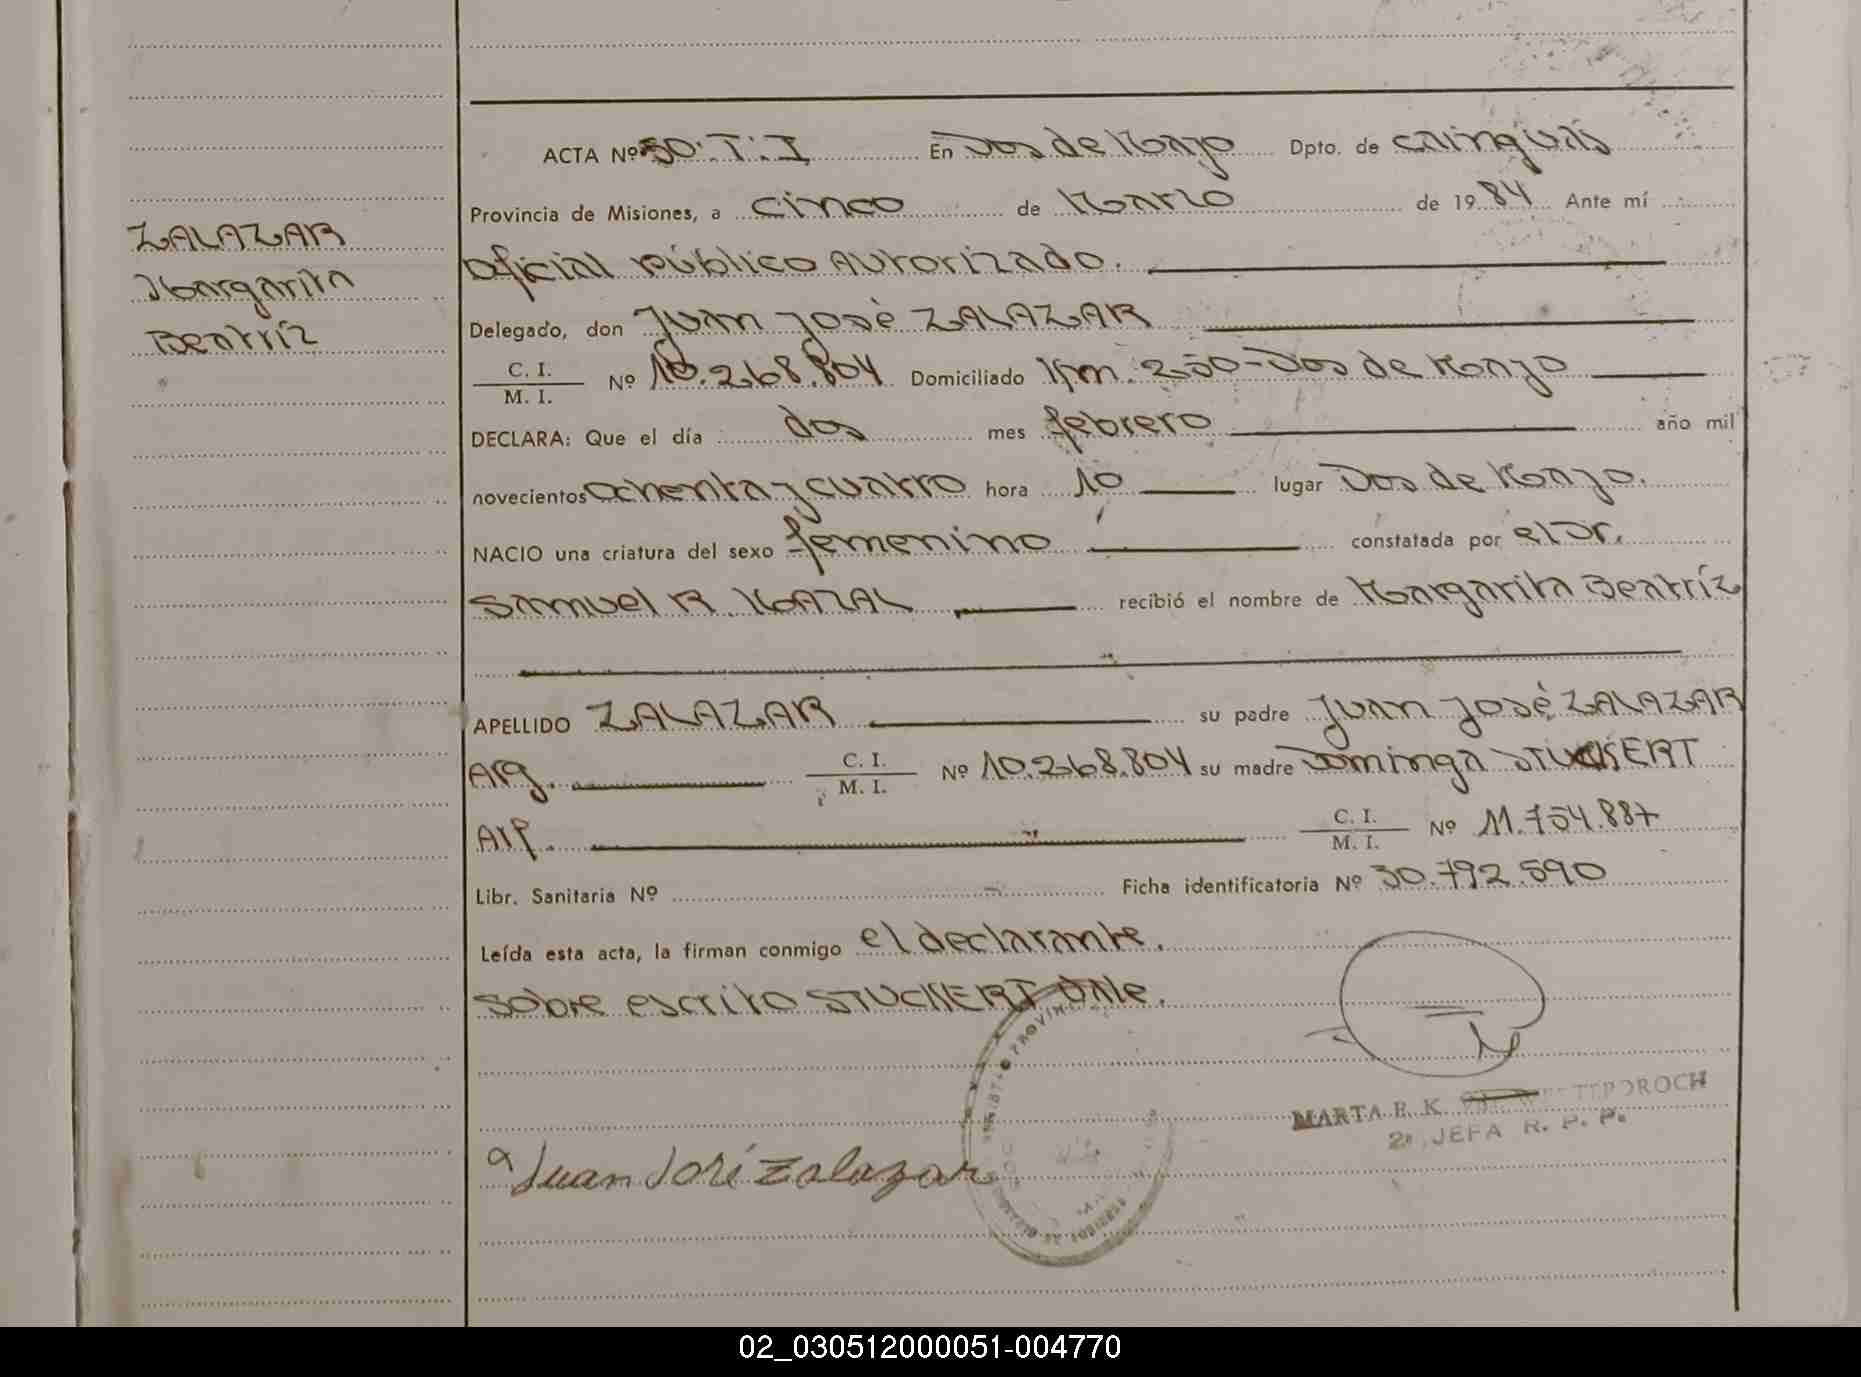 ACTA Nº 50. T. I En Dos de Mayo Dpto. de Cainguás
Provincia de Misiones, a cinco de Marzo de 1984 Ante mí
ZALAZAR
Oficial público Autorizado.
Margarita
Delegado, don Juan José ZALAZAR
Beatríz
C. I.
M. I. Nº 10.268.804 Domiciliado Km. 250-Dos de Mayo
DECLARA: Que el día dos mes febrero año mil
novecientos ochenta y cuatro hora 10 lugar Dos de Mayo.
NACIO una criatura del sexo femenino constatada por el Dr.
Samuel R. MAZAL recibió el nombre de Margarita Beatríz
APELLIDO ZALAZAR su padre Juan José ZALAZAR
Arg. C. I.
M. I. Nº 10.268.804 su madre Dominga STUCKERT
Arg. C. I.
M. I. Nº 11.754.887
Libr. Sanitaria Nº Ficha identificatoria Nº 30.792.590
Leída esta acta, la firman conmigo el declarante.
Sobre escrito STUCKERT Vale.
MARTA E. K.
2ª JEFA R. P. P.
Juan José Zalazar
02_030512000051-004770